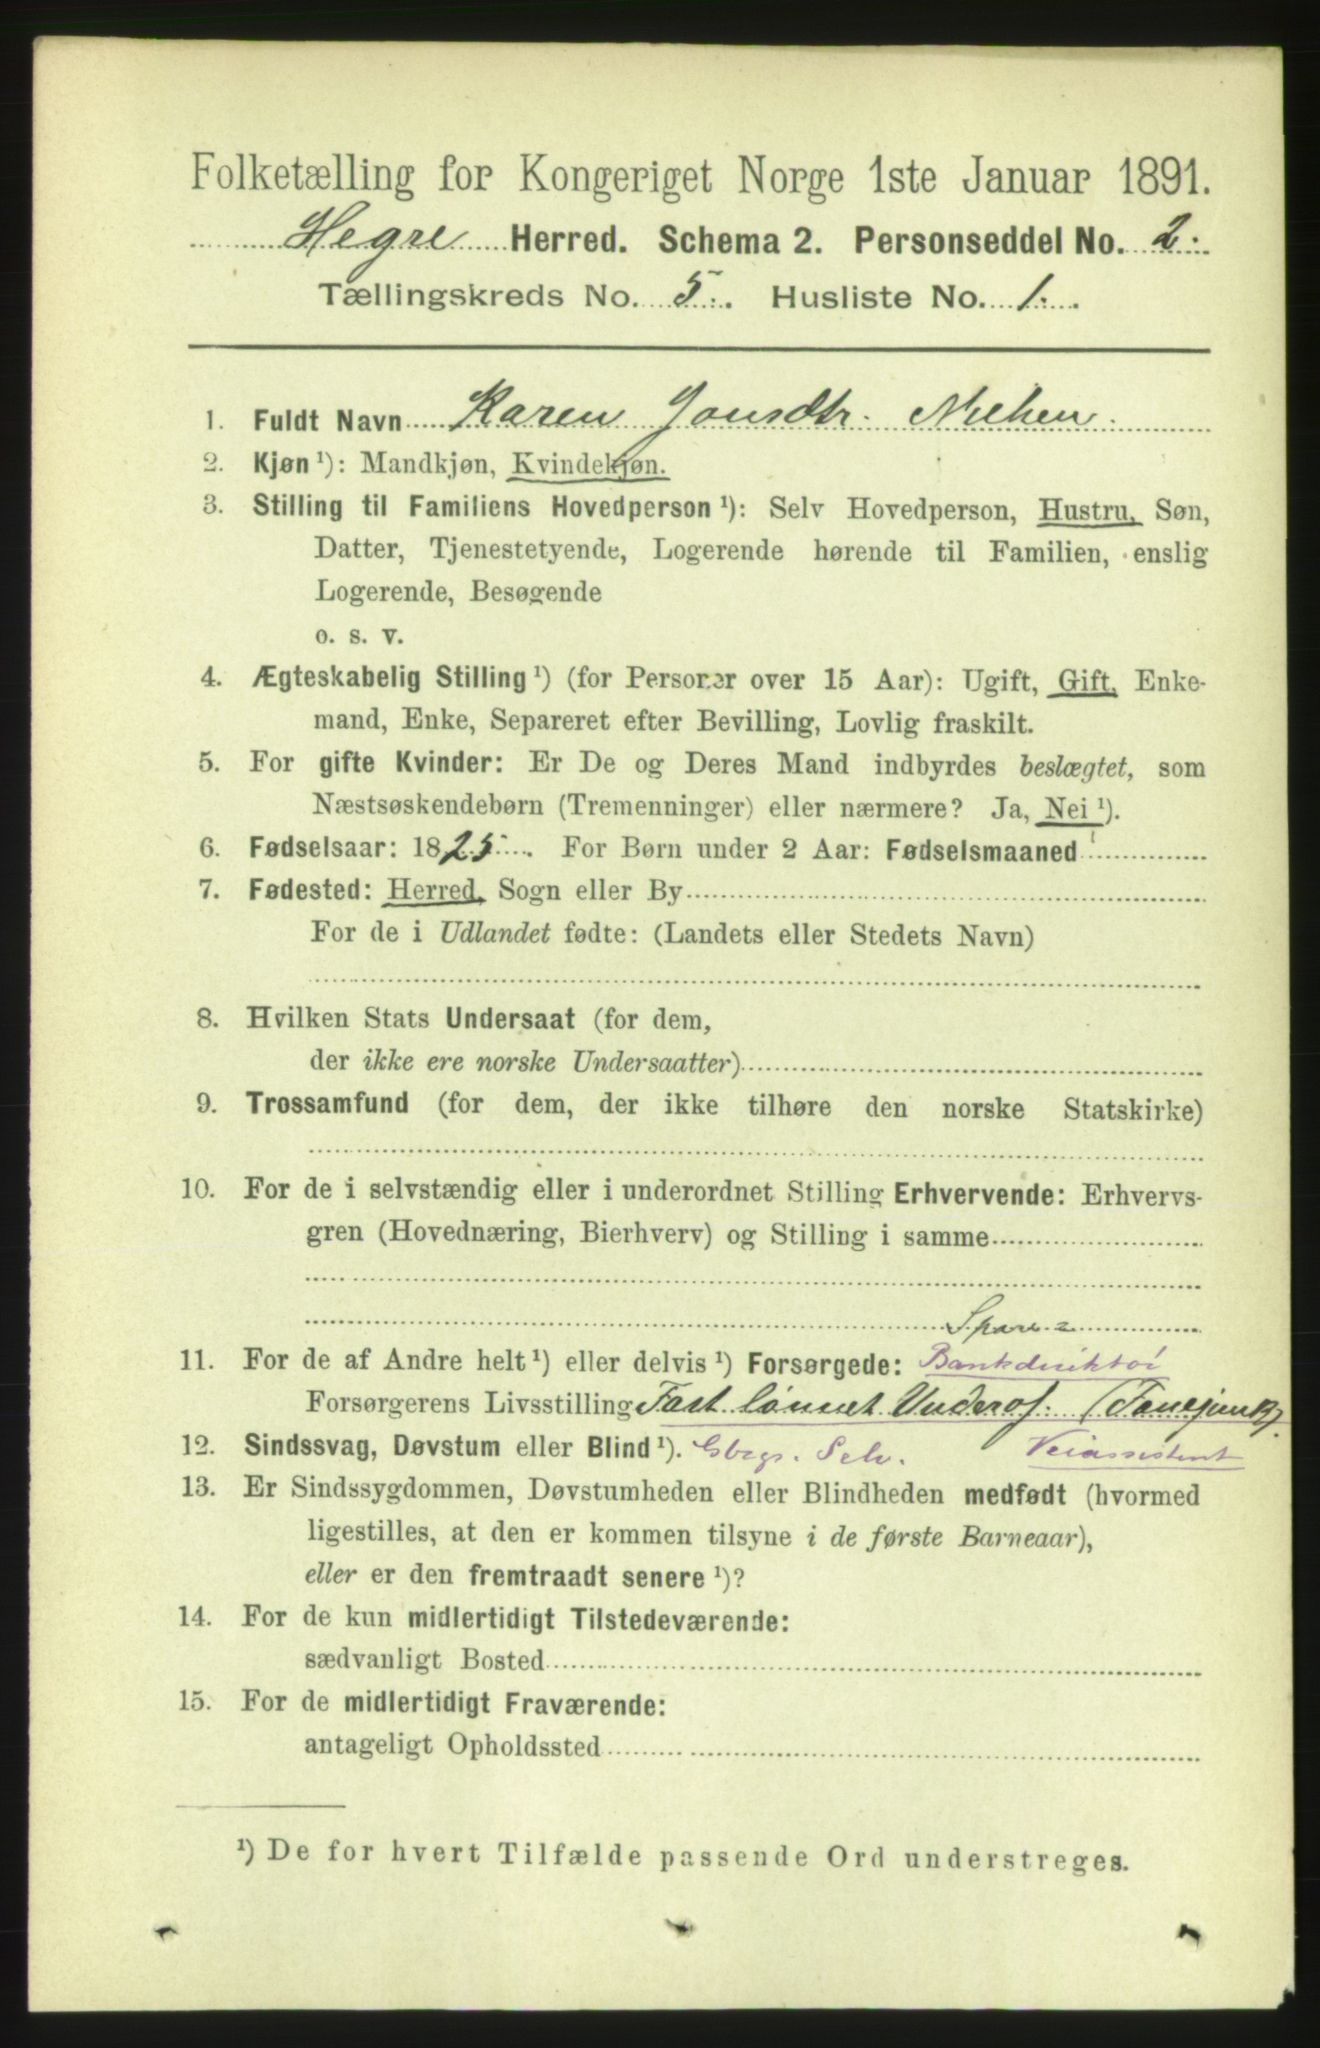 Folketælling for Kongeriget Norge 1ste Januar 1891.
Hegre Herred. Schema 2. Personseddel No. 2.
Tællingskreds No. 5. Husliste No. 1.
1. Fuldt Navn Karen Jonsdtr.
2. Kjøn ¹): Mandkjøn, Kvindekjøn.
3. Stilling til Familiens Hovedperson ¹): Selv Hovedperson, Hustru, Søn,
Datter, Tjenestetyende, Logerende hørende til Familien, enslig
Logerende, Besøgende
o. s. v.
4. Ægteskabelig Stilling ¹) (for Personer over 15 Aar): Ugift, Gift, Enke-
mand, Enke, Separeret efter Bevilling, Lovlig fraskilt.
5. For gifte Kvinder: Er De og Deres Mand indbyrdes beslægtet, som
Næstsøskendebørn (Tremenninger) eller nærmere? Ja, Nei ¹).
6. Fødselsaar: 1825. For Børn under 2 Aar: Fødselsmaaned
7. Fødested: Herred, Sogn eller By
For de i Udlandet fødte: (Landets eller Stedets Navn)
8. Hvilken Stats Undersaat (for dem,
der ikke ere norske Undersaatter)
9. Trossamfund (for dem, der ikke tilhøre den norske Statskirke)
10. For de i selvstændig eller i underordnet Stilling Erhvervende: Erhvervs-
gren (Hovednæring, Bierhverv) og Stilling i samme
Spare=
11. For de af Andre helt ¹) eller delvis ¹) Forsørgede: Bankdirektør
Forsørgerens Livsstilling Fast lønnet Underof. (Fanejunk).
12. Sindssvag, Døvstum eller Blind ¹). Gbrgr. Selv. Veiassistent
13. Er Sindssygdommen, Døvstumheden eller Blindheden medfødt (hvormed
ligestilles, at den er kommen tilsyne i de første Barneaar),
eller er den fremtraadt senere ¹)?
14. For de kun midlertidigt Tilstedeværende:
sædvanligt Bosted
15. For de midlertidigt Fraværende:
antageligt Opholdssted
¹) De for hvert Tilfælde passende Ord understreges.